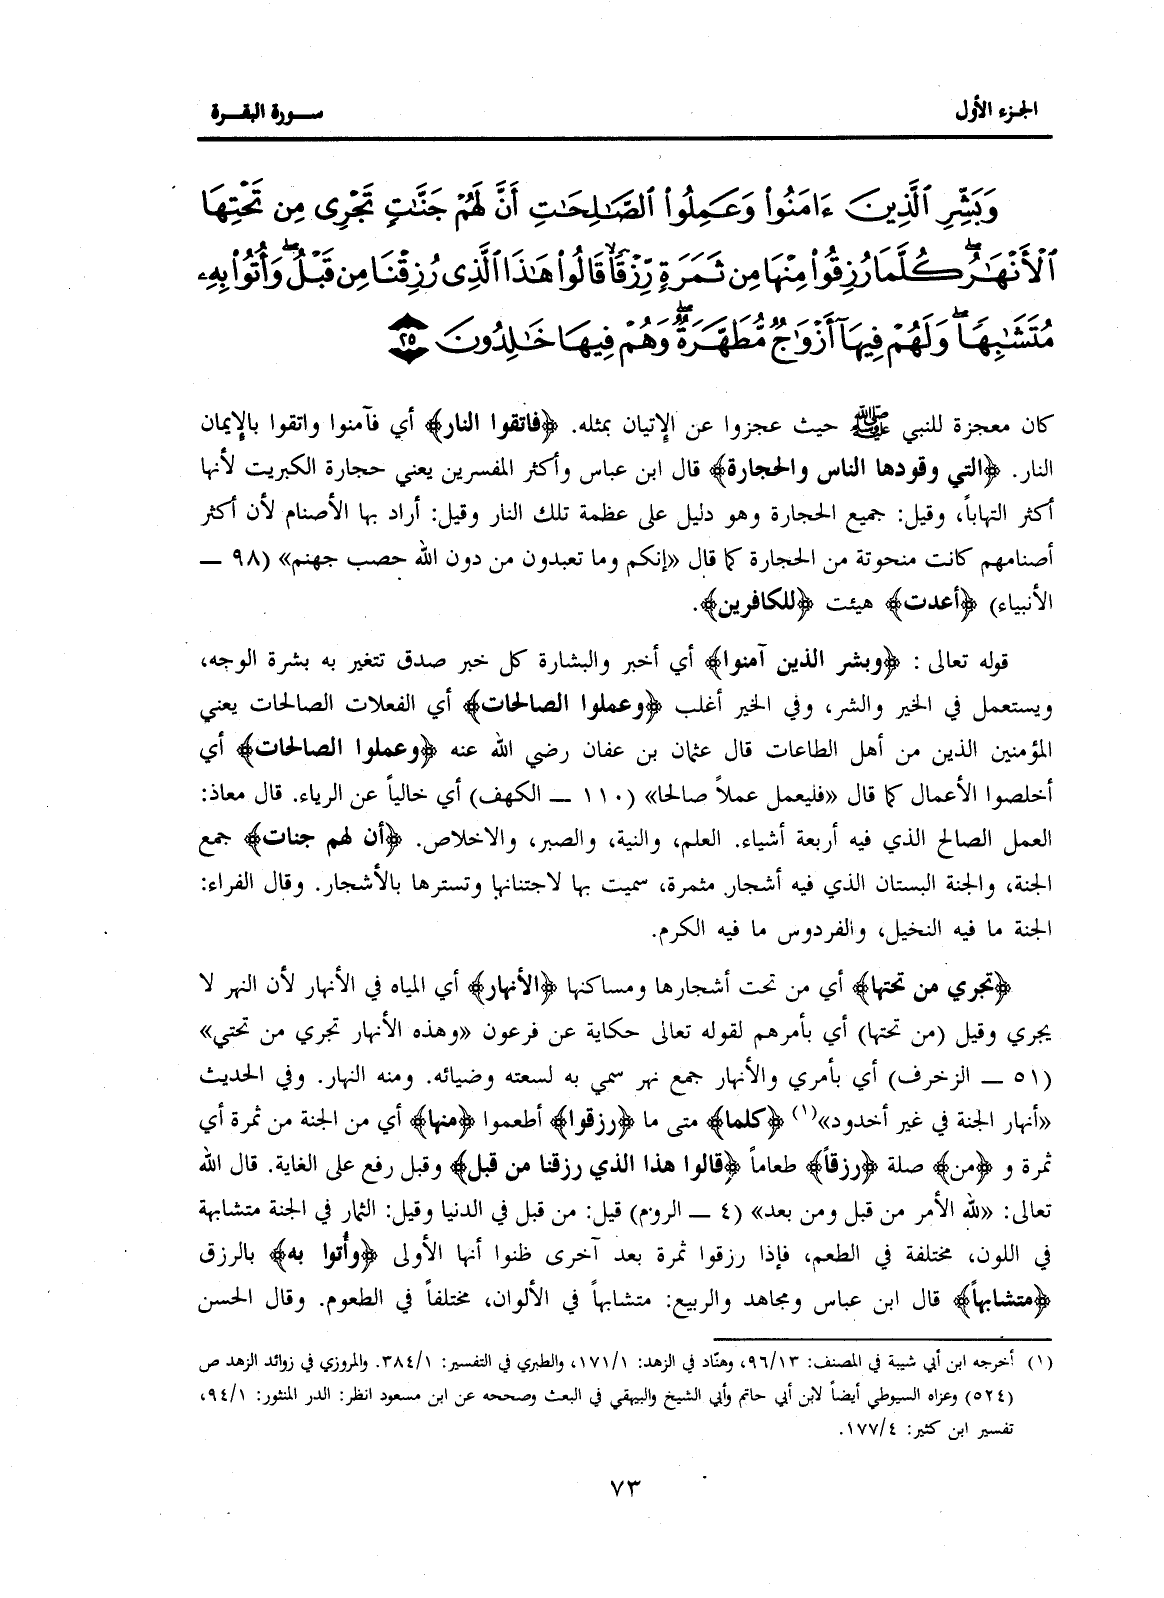 الجزء الأول
سورة البقرة
وَبَشِّرِ ٱلَّذِينَ ءَامَنُوا۟ وَعَمِلُوا۟ ٱلصَّٰلِحَٰتِ أَنَّ لَهُمْ جَنَّٰتٍ تَجْرِى مِن تَحْتِهَا
ٱلْأَنْهَٰرُ ۖ كُلَّمَا رُزِقُوا۟ مِنْهَا مِن ثَمَرَةٍ رِّزْقًا ۙ قَالُوا۟ هَٰذَا ٱلَّذِى رُزِقْنَا مِن قَبْلُ ۖ وَأُتُوا۟ بِهِۦ
مُتَشَٰبِهًا ۖ وَلَهُمْ فِيهَآ أَزْوَٰجٌ مُّطَهَّرَةٌ ۖ وَهُمْ فِيهَا خَٰلِدُونَ ٢٥
كان معجزة للنبي ﷺ حيث عجزوا عن الإتيان بمثله. ﴿فاتقوا النار﴾ أي فآمنوا واتقوا بالإيمان
النار. ﴿التي وقودها الناس والحجارة﴾ قال ابن عباس وأكثر المفسرين يعني حجارة الكبريت لأنها
أكثر التهاباً، وقيل: جميع الحجارة وهو دليل على عظمة تلك النار وقيل: أراد بها الأصنام لأن أكثر
أصنامهم كانت منحوتة من الحجارة كما قال «إنكم وما تعبدون من دون الله حصب جهنم» (٩٨ ــ
الأنبياء) ﴿أعدت﴾ هيئت ﴿للكافرين﴾.
قوله تعالى: ﴿وبشر الذين آمنوا﴾ أي أخبر والبشارة كل خبر صدق تتغير به بشرة الوجه،
ويستعمل في الخير والشر، وفي الخير أغلب ﴿وعملوا الصالحات﴾ أي الفعلات الصالحات يعني
المؤمنين الذين من أهل الطاعات قال عثمان بن عفان رضي الله عنه ﴿وعملوا الصالحات﴾ أي
أخلصوا الأعمال كما قال «فليعمل عملاً صالحا» (١١٠ ــ الكهف) أي خالياً عن الرياء. قال معاذ:
العمل الصالح الذي فيه أربعة أشياء. العلم، والنية، والصبر، والاخلاص. ﴿أن لهم جنات﴾ جمع
الجنة، والجنة البستان الذي فيه أشجار مثمرة، سميت بها لاجتنانها وتسترها بالأشجار. وقال الفراء:
الجنة ما فيه النخيل، والفردوس ما فيه الكرم.
﴿تجري من تحتها﴾ أي من تحت أشجارها ومساكنها ﴿الأنهار﴾ أي المياه في الأنهار لأن النهر لا
يجري وقيل (من تحتها) أي بأمرهم لقوله تعالى حكاية عن فرعون «وهذه الأنهار تجري من تحتي»
(٥١ ــ الزخرف) أي بأمري والأنهار جمع نهر سمي به لسعته وضيائه. ومنه النهار. وفي الحديث
«أنهار الجنة في غير أخدود»(١) ﴿كلما﴾ متى ما ﴿رزقوا﴾ أطعموا ﴿منها﴾ أي من الجنة من ثمرة أي
ثمرة و ﴿من﴾ صلة ﴿رزقاً﴾ طعاماً ﴿قالوا هذا الذي رزقنا من قبل﴾ وقبل رفع على الغاية. قال الله
تعالى: «لله الأمر من قبل ومن بعد» (٤ ــ الروم) قيل: من قبل في الدنيا وقيل: الثمار في الجنة متشابهة
في اللون، مختلفة في الطعم، فإذا رزقوا ثمرة بعد آخرى ظنوا أنها الأولى ﴿وأُتوا به﴾ بالرزق
﴿متشابهاً﴾ قال ابن عباس ومجاهد والربيع: متشابهاً في الألوان، مختلفاً في الطعوم. وقال الحسن
(١) أخرجه ابن أبي شيبة في المصنف: ٩٦/١٣، وهنّاد في الزهد: ١٧١/١، والطبري في التفسير: ٣٨٤/١. والمروزي في زوائد الزهد ص
(٥٢٤) وعزاه السيوطي أيضاً لابن أبي حاتم وأبي الشيخ والبيهقي في البعث وصححه عن ابن مسعود انظر: الدر المنثور: ٩٤/١،
تفسير ابن كثير: ١٧٧/٤.
٧٣